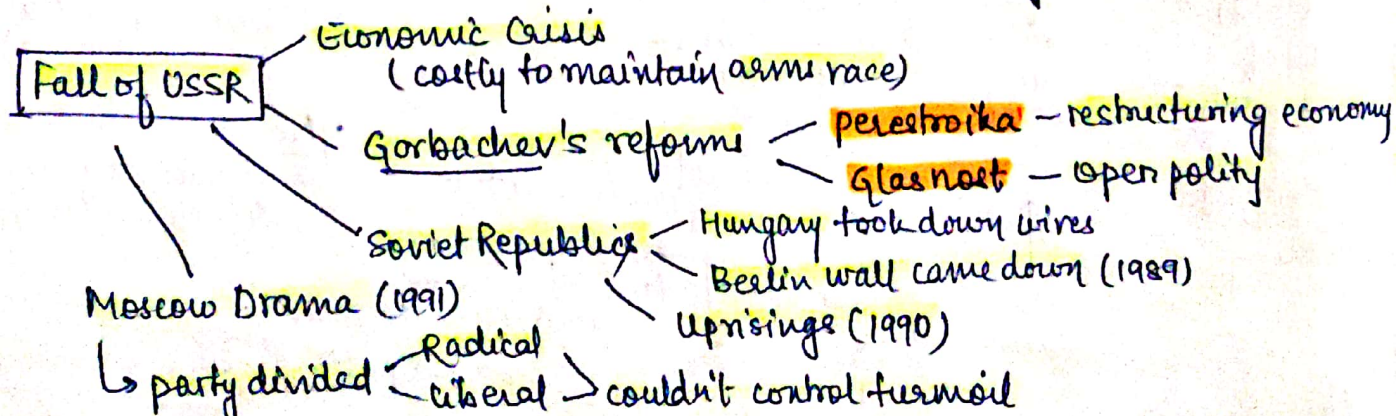 Economic Crisis
Fall of USSR
(costly to maintain arms race)
Gorbachev's reforms
perestroika – restructuring economy
Glasnost – open polity
Soviet Republics
Hungary took down wires
Berlin wall came down (1989)
Uprisings (1990)
Moscow Drama (1991)
↳ party divided
Radical
Liberal
couldn't control turmoil